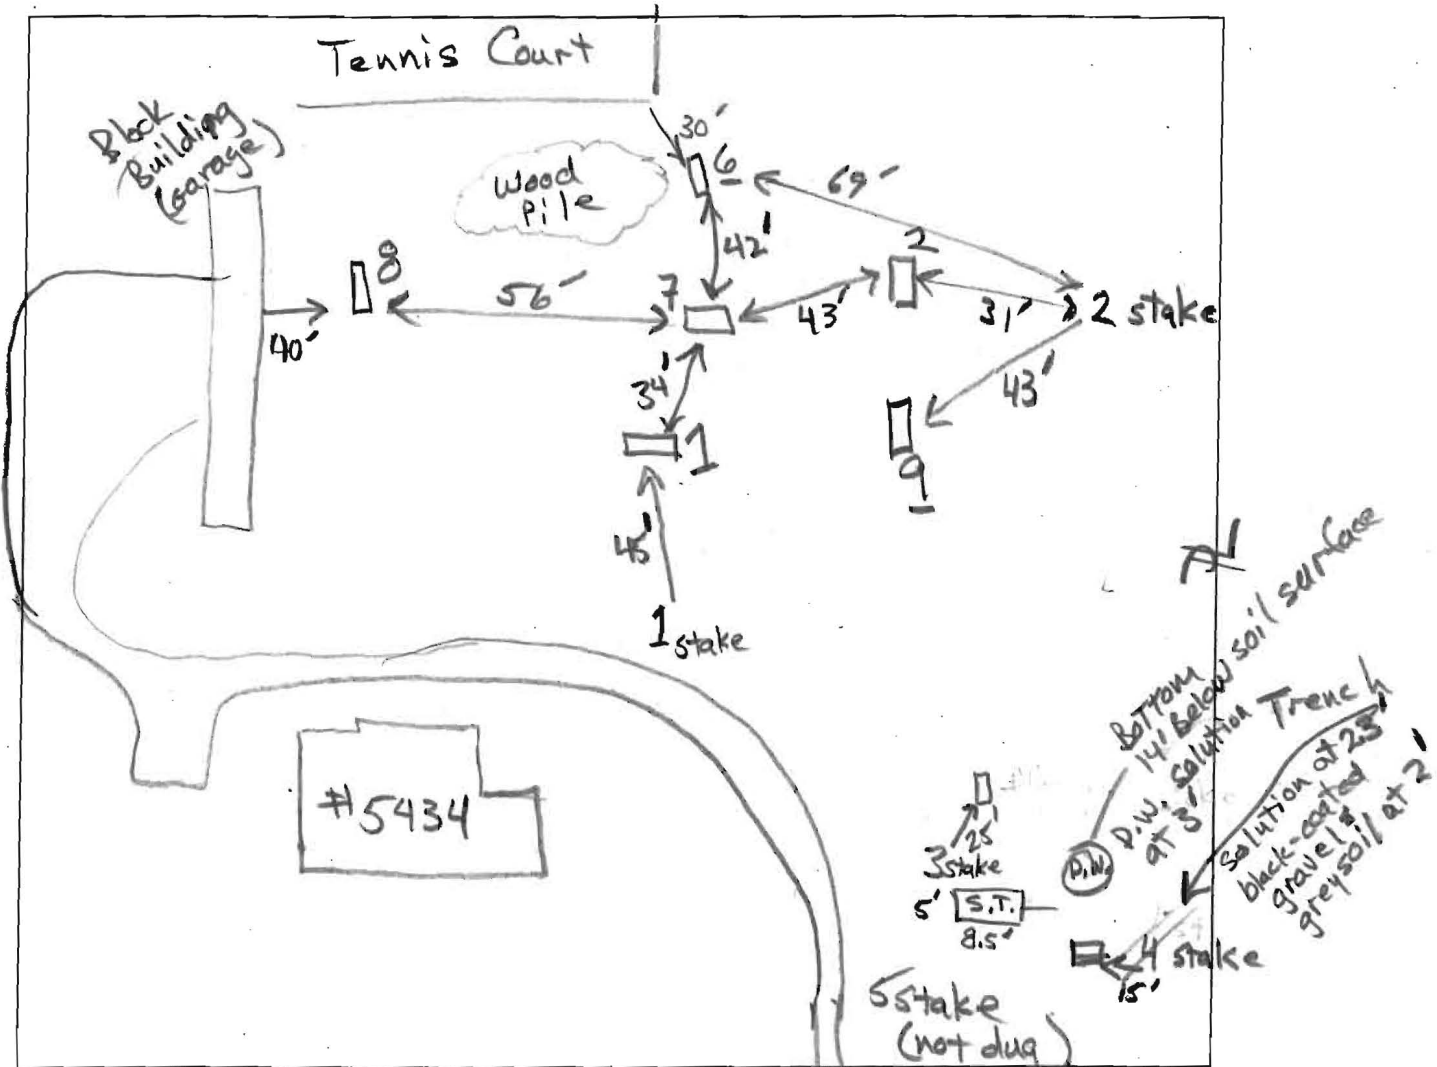 Tennis Court
Block
Building
(Garage)
30'
6
Wood
Pile
69'
42'
2
8
56'
7
43'
31'
2 stake
40'
34'
43'
1
9
45'
1 stake
N
Bottom
14' Below soil surface
D.W. solution Trench
at 3'
solution at 2.5'
black-coated
gravel &
grey soil at 2'
#5434
25'
3 stake
D.W.
5'
S.T.
8.5'
4 stake
15'
5 stake
(not dug)